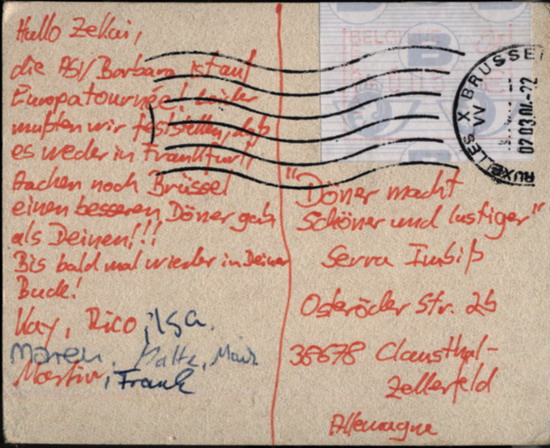 Hallo Zekai,
die PSV Barbara ist auf
Europatournee! Leider
mußten wir feststellen, daß
es weder in Frankfurt,
Aachen noch Brüssel
einen besseren Döner gab
als Deinen!!!
Bis bald mal wieder in Deiner
Bude!
Kay, Rico, Ilga.
Maren, Malte,
Martin, Frank
BRUXELLES X BRUSSEL
"Döner macht
schöner und lustiger"
Serva Imbiß
Osteröder Str. 2b
38678 Clausthal-
Zellerfeld
Allemagne